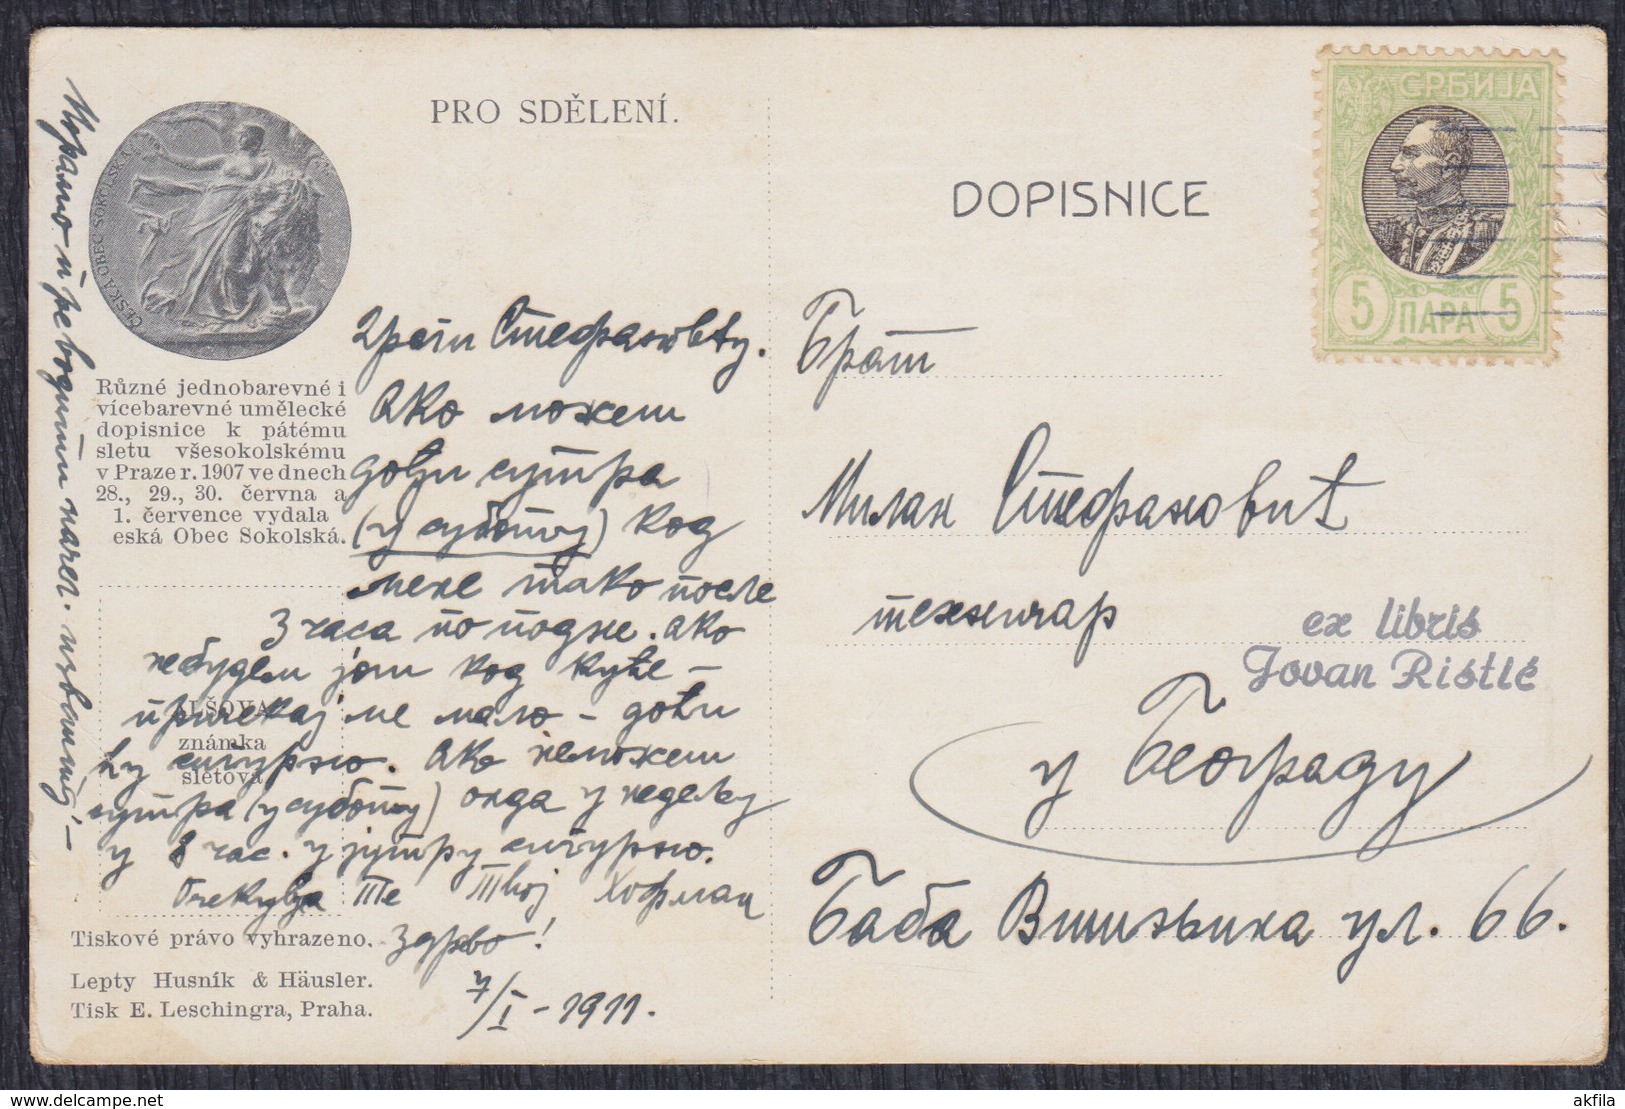 PRO SDĚLENÍ.
DOPISNICE
СРБИЈА
5 ПАРА 5
ČESKÁ OBEC SOKOLSKÁ
Různé jednobarevné i
vícebarevné umělecké
dopisnice k pátému
sletu všesokolskému
v Praze r. 1907 ve dnech
28., 29., 30. června a
1. července vydala
eská Obec Sokolská.
známka
sletová
Драги Стефановићу.
Ако можеш
доћи сутра
(у суботу) код
мене тако после
3 часа по подне. Ако
небудем још код куће –
причекај ме мало – доћи
ћу сигурно. Ако неможеш
сутра (у суботу) онда у недељу
у 8 час. у јутру сигурно.
Очекује Те Твој Хофман
Здраво!
7/I – 1911.
Tiskové právo vyhrazeno.
Lepty Husník & Häusler.
Tisk E. Leschingra, Praha.
Брат
Милан Стефановић
техничар
у Београду
Баба Вишњина ул. 66.
ex libris
Jovan Ristić
akfila